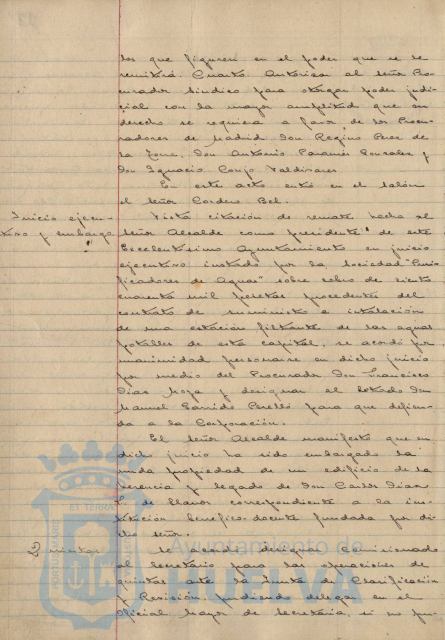 los que figuren en el poder que se le
remitirá. Cuarto. Autorizar al señor Pro-
curador Síndico para otorgar poder judi-
cial con la mayor amplitud que en
derecho se requiera a favor de los Procu-
radores de Madrid Don Regino Perez de
la Torre, Don Antonio Gonzalez y
Don Ignacio Corujo Valdivares
En este acto entró en el salón
el señor Cordero Bel.
Inicio ejecu-
tivo y embargo
Vista citación de remate hecha al
señor Alcalde como presidente de este
Excelentísimo Ayuntamiento en juicio
ejecutivo instado por la Sociedad "Puri-
ficadores de Aguas" sobre cobro de ciento
cuarenta mil pesetas procedentes del
contrato de suministro e instalación
de una estación filtrante de las aguas
potables de esta capital, se acordó por
unanimidad personarse en dicho juicio
por medio del Procurador Don Francisco
Diaz y designar al Letrado Don
Manuel Garrido Perelló para que defien-
da a la Corporación.
El señor Alcalde manifestó que en
dicho juicio ha sido embargado la
nuda propiedad de un edificio de la
herencia y legado de Don Carlos Diaz
de Llanos correspondiente a la ins-
titución benéfico-docente fundada por di-
cho señor.
Quintas
Se acordó designar Comisionado
al Secretario para las operaciones de
quintas ante la Junta de Clasificación
y Revisión, pudiendo delegar en el
Oficial Mayor de Secretaría, si no pu-
Ayuntamiento de
HUELVA